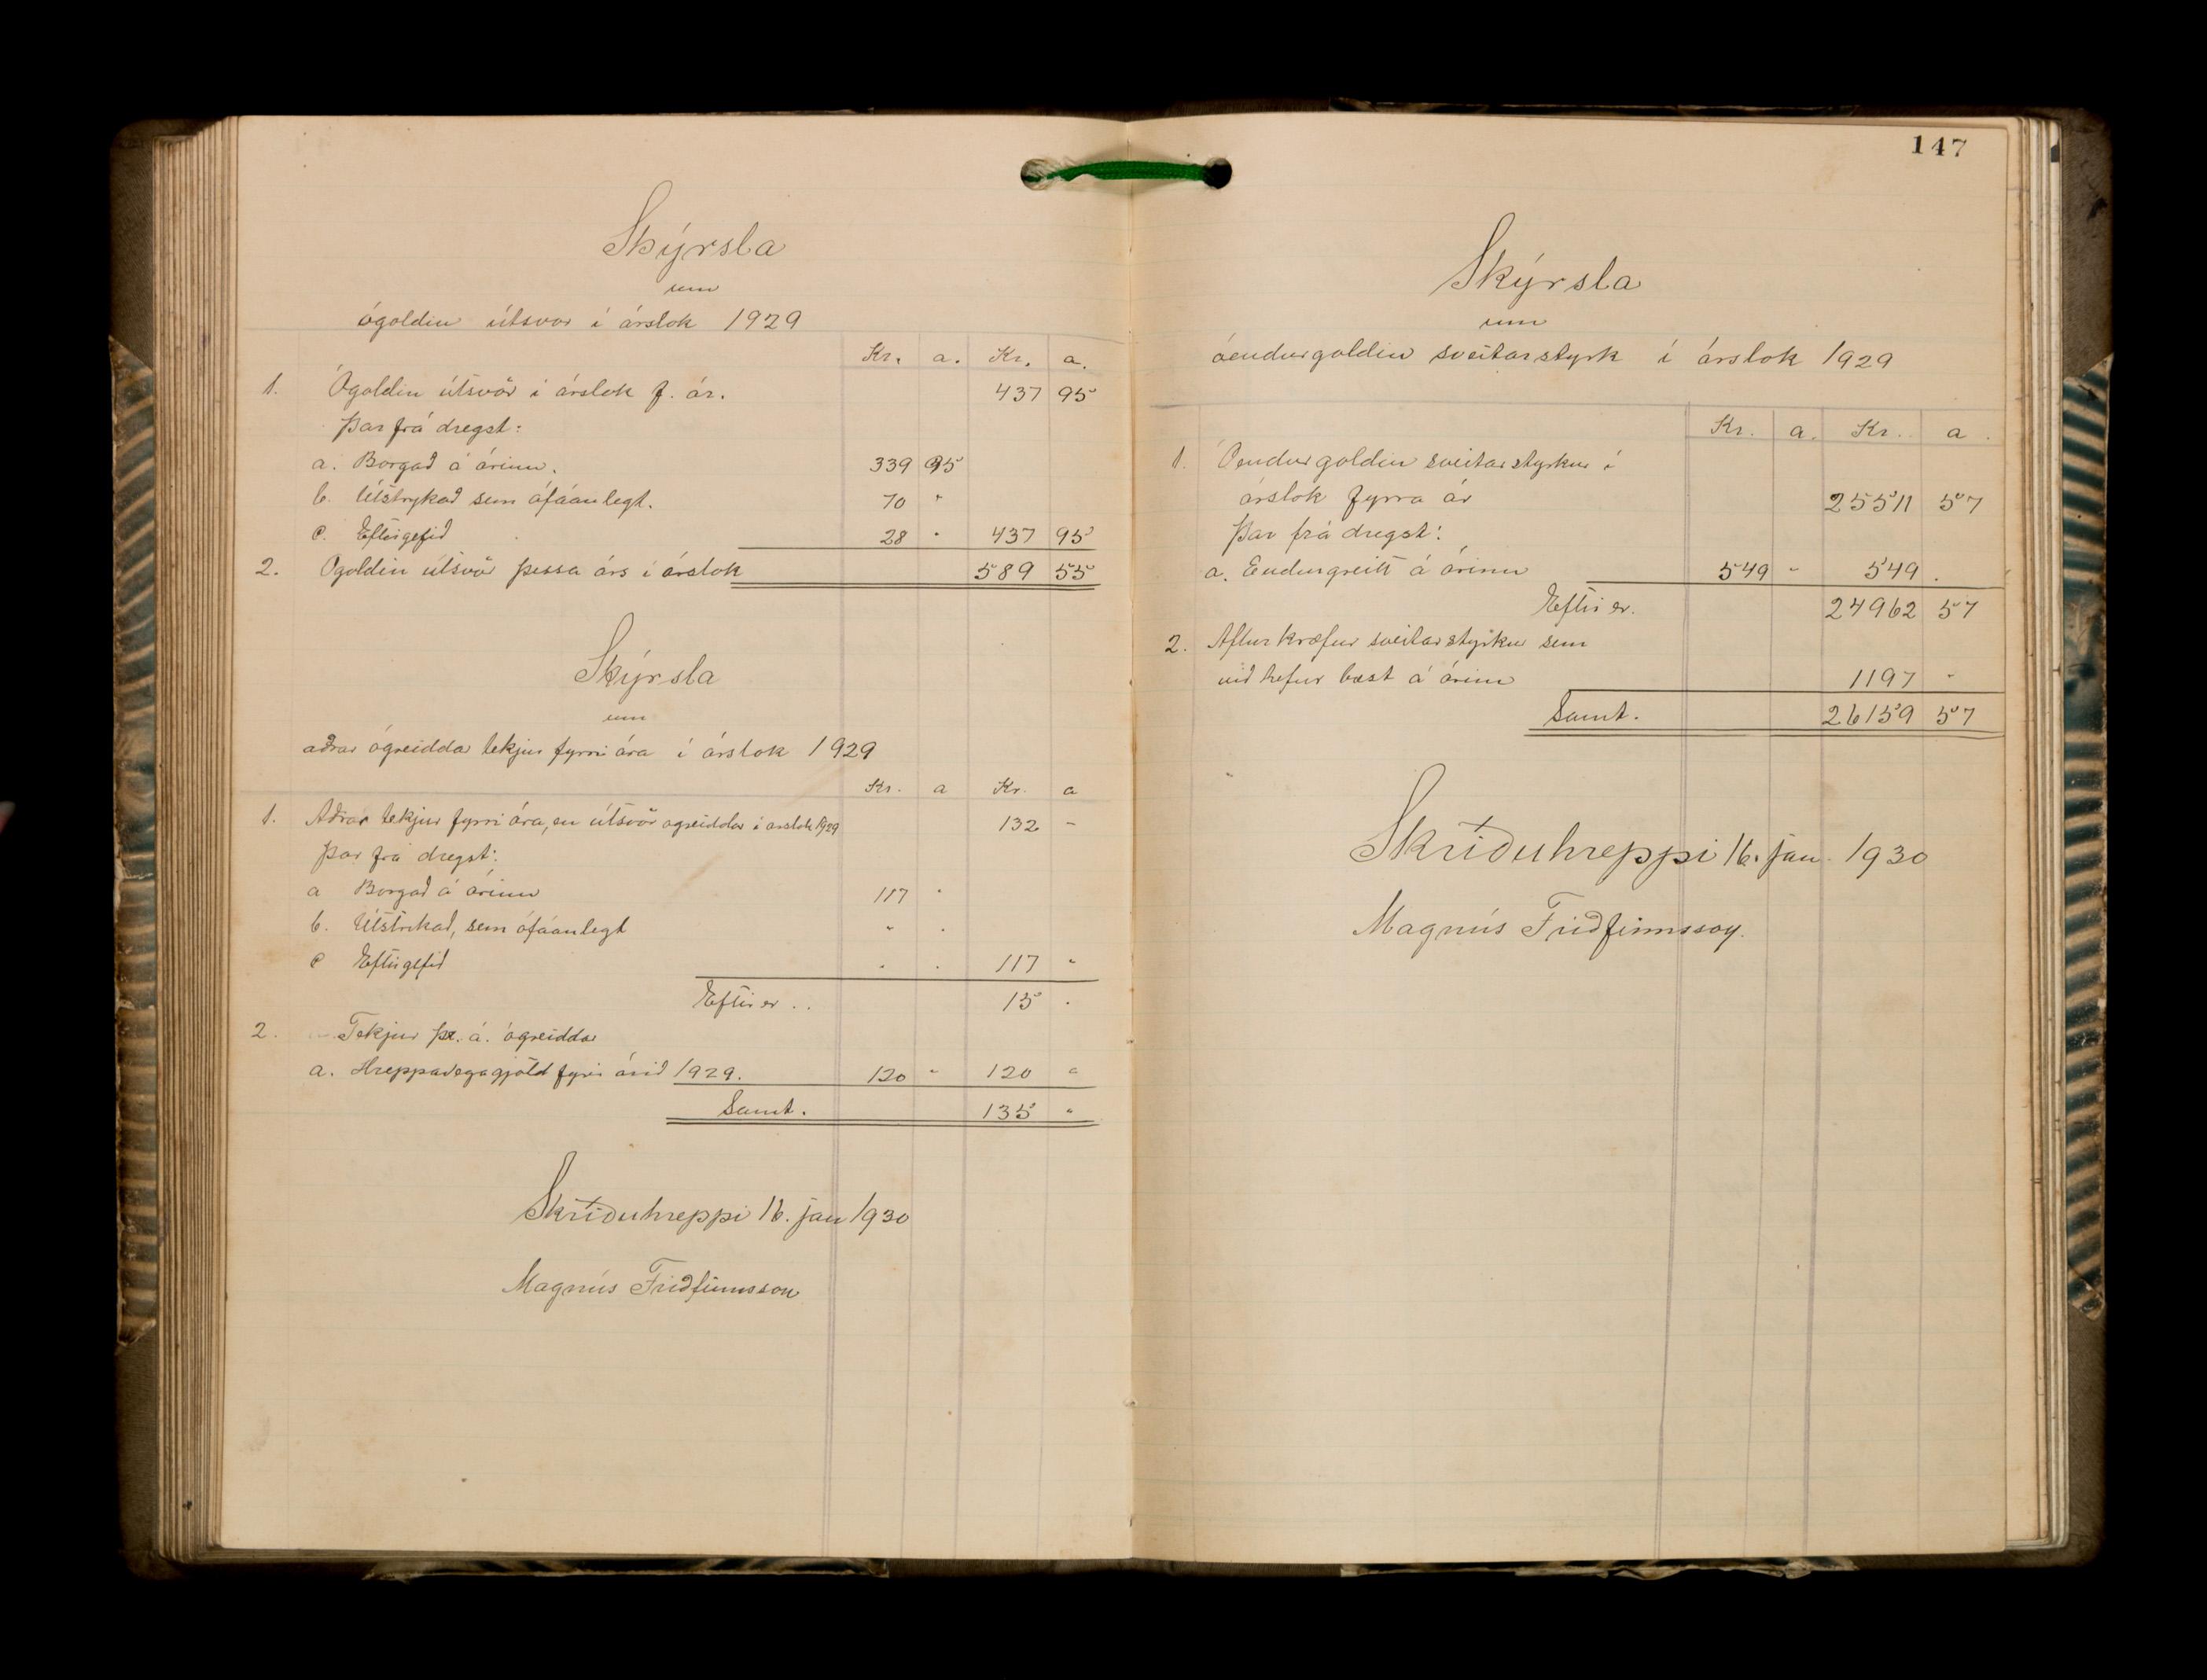 Skýrsla
um
ógoldin útsvör í árslok 1929
Kr. a. Kr. a.
1. Ógoldin útsvör í árslok f. ár. 437 95
Þar frá dregst:
a. Borgað á árinu. 339 95
b. Útstrykað sem ófáanlegt. 70 "
c. Eftirgefið 28 " 437 95
2. Ógoldin útsvör þessa árs í árslok 589 55
Skýrsla
um
aðrar ógreiddar tekjur fyrri ára í árslok 1929
Kr. a Kr. a
1. Aðrar tekjur fyrri ára, en útsvör ógreiddar í árslok 1929 132 -
Þar frá dregst:
a Borgað á árinu 117 "
b. Útstrikað, sem ófáanlegt " "
c Eftirgefið " " 117 "
Eftir er.. 15 "
2. Tekjur þ. á. ógreiddar
a. Hreppavegagjöld fyrir árið 1929. 120 " 120 "
Samt. 135 "
Skriðuhreppi 16. jan 1930
Magnús Friðfinnsson
147
Skýrsla
um
óendurgoldin sveitarstyrk í árslok 1929
Kr. a. Kr. a.
1. Óendurgoldin sveitarstyrkur í
árslok fyrra ár 25511 57
Þar frá dregst:
a. Endurgreitt á árinu 549 - 549 .
Eftir er. 24962 57
2. Afturkræfur sveitarstyrkur sem
við hefur bæst á árinu 1197 "
Samt. 26159 57
Skriðuhreppi 16. jan. 1930
Magnús Friðfinnsson.